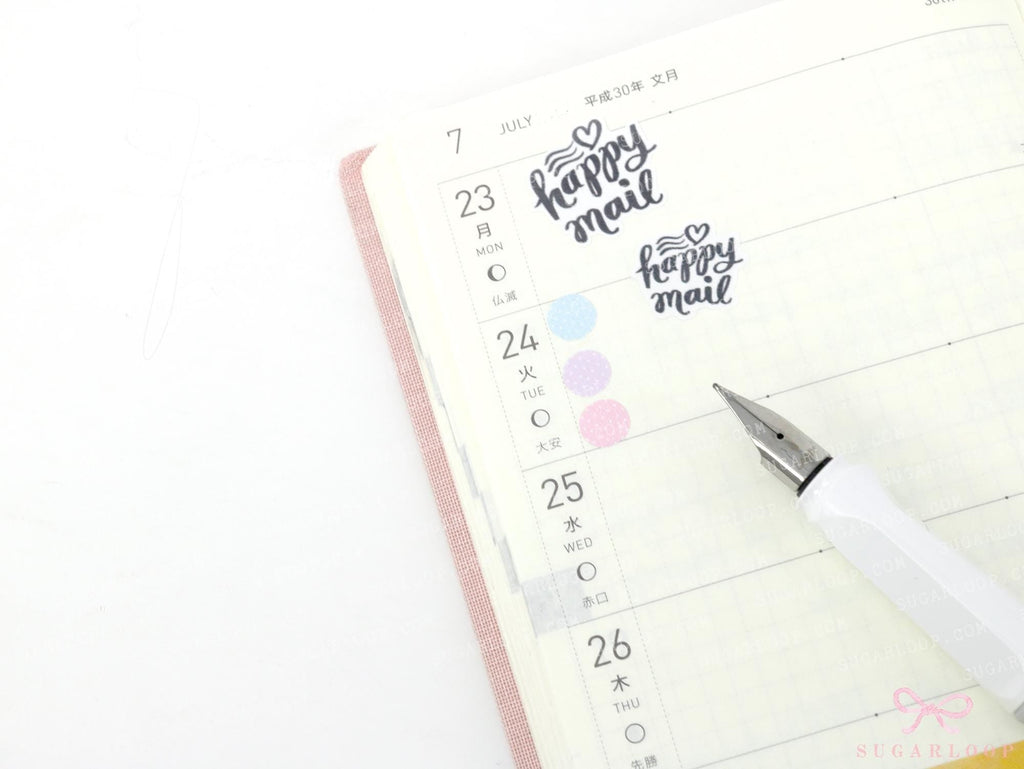 7 JULY 平成30年 文月
happy
mail
happy
mail
23
月
MON
仏滅
24
火
TUE
大安
25
水
WED
赤口
26
木
THU
先勝
SUGARLOOP.COM
SUGARLOOP